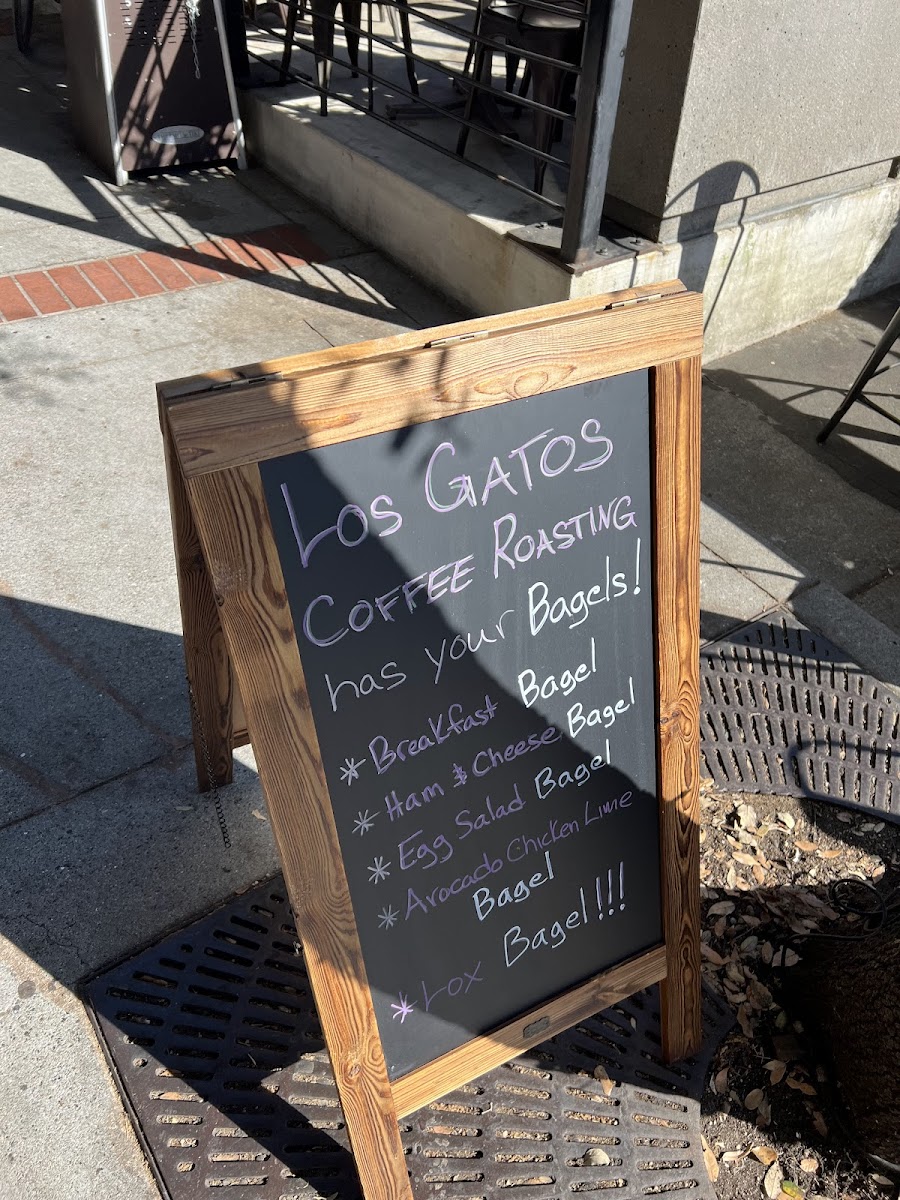 Los GATOS
COFFEE ROASTING
has your Bagels!
* Breakfast Bagel
* Ham & Cheese Bagel
* Egg Salad Bagel
* Avocado Chicken Lime
Bagel
* Lox Bagel!!!